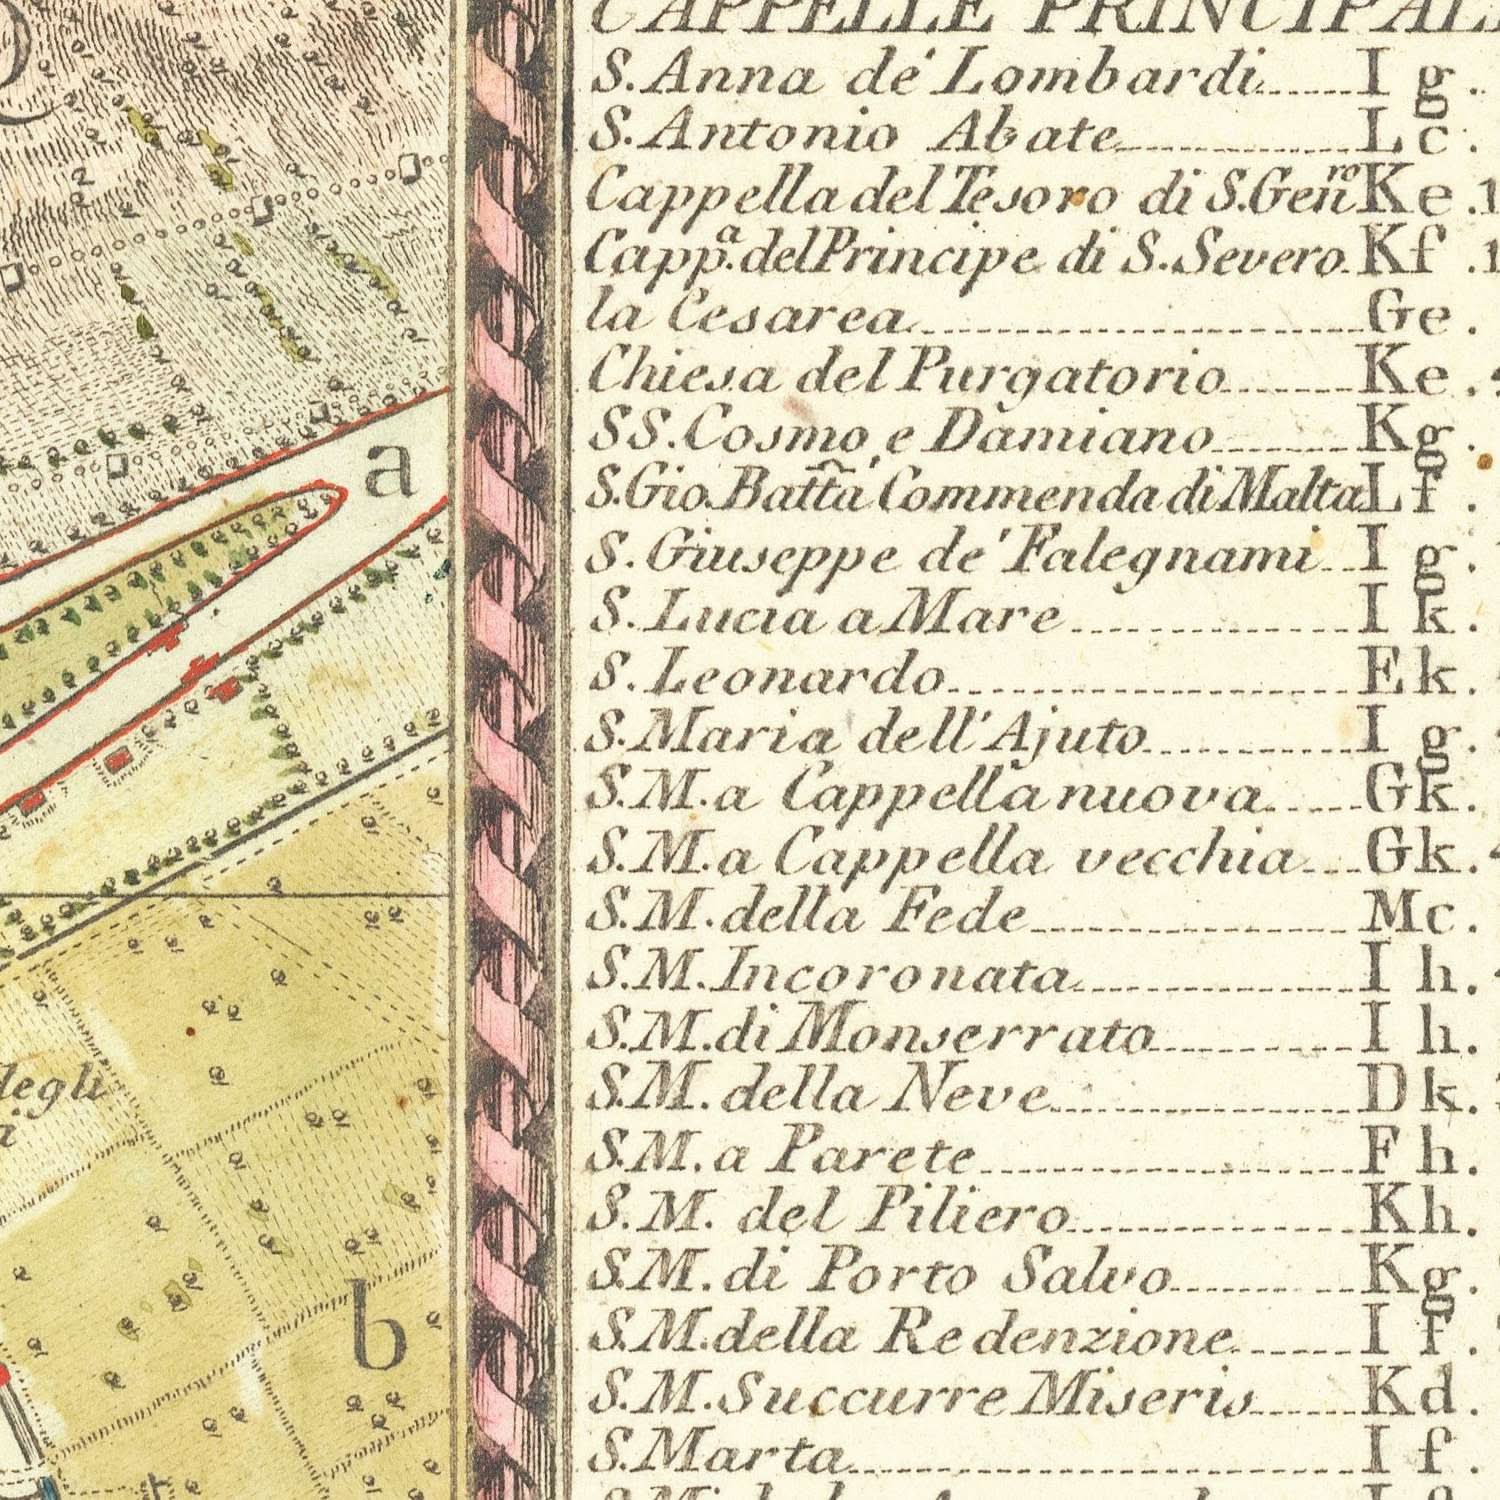 CAPPELLE PRINCIPALI
S. Anna de' Lombardi......I g.
S. Antonio Abate..............L c.
Cappella del Tesoro di S. Gen̄ro K e.1
Capp.a del Principe di S. Severo. K f.1
la Cesarea..............................G e.
Chiesa del Purgatorio.......K e.
SS. Cosmo, e Damiano.......K g.
S. Gio. Batt̄a Commenda di Malta L f.
S. Giuseppe de' Falegnami..I g.
S. Lucia a Mare..................I k.
S. Leonardo..........................E k.
S. Maria dell' Ajuto............I g.
S. M. a Cappella nuova.....G k.
S. M. a Cappella vecchia...G k.
S. M. della Fede..................M c.
S. M. Incoronata................I h.
S. M. di Monserrato..........I h.
S. M. della Neve..................D k.
S. M. a Parete......................F h.
S. M. del Piliero..................K h.
S. M. di Porto Salvo..........K g.
S. M. della Redenzione......I f.
S. M. Succurre Miseris......K d.
S. Marta..............................I f.
a
degli
b